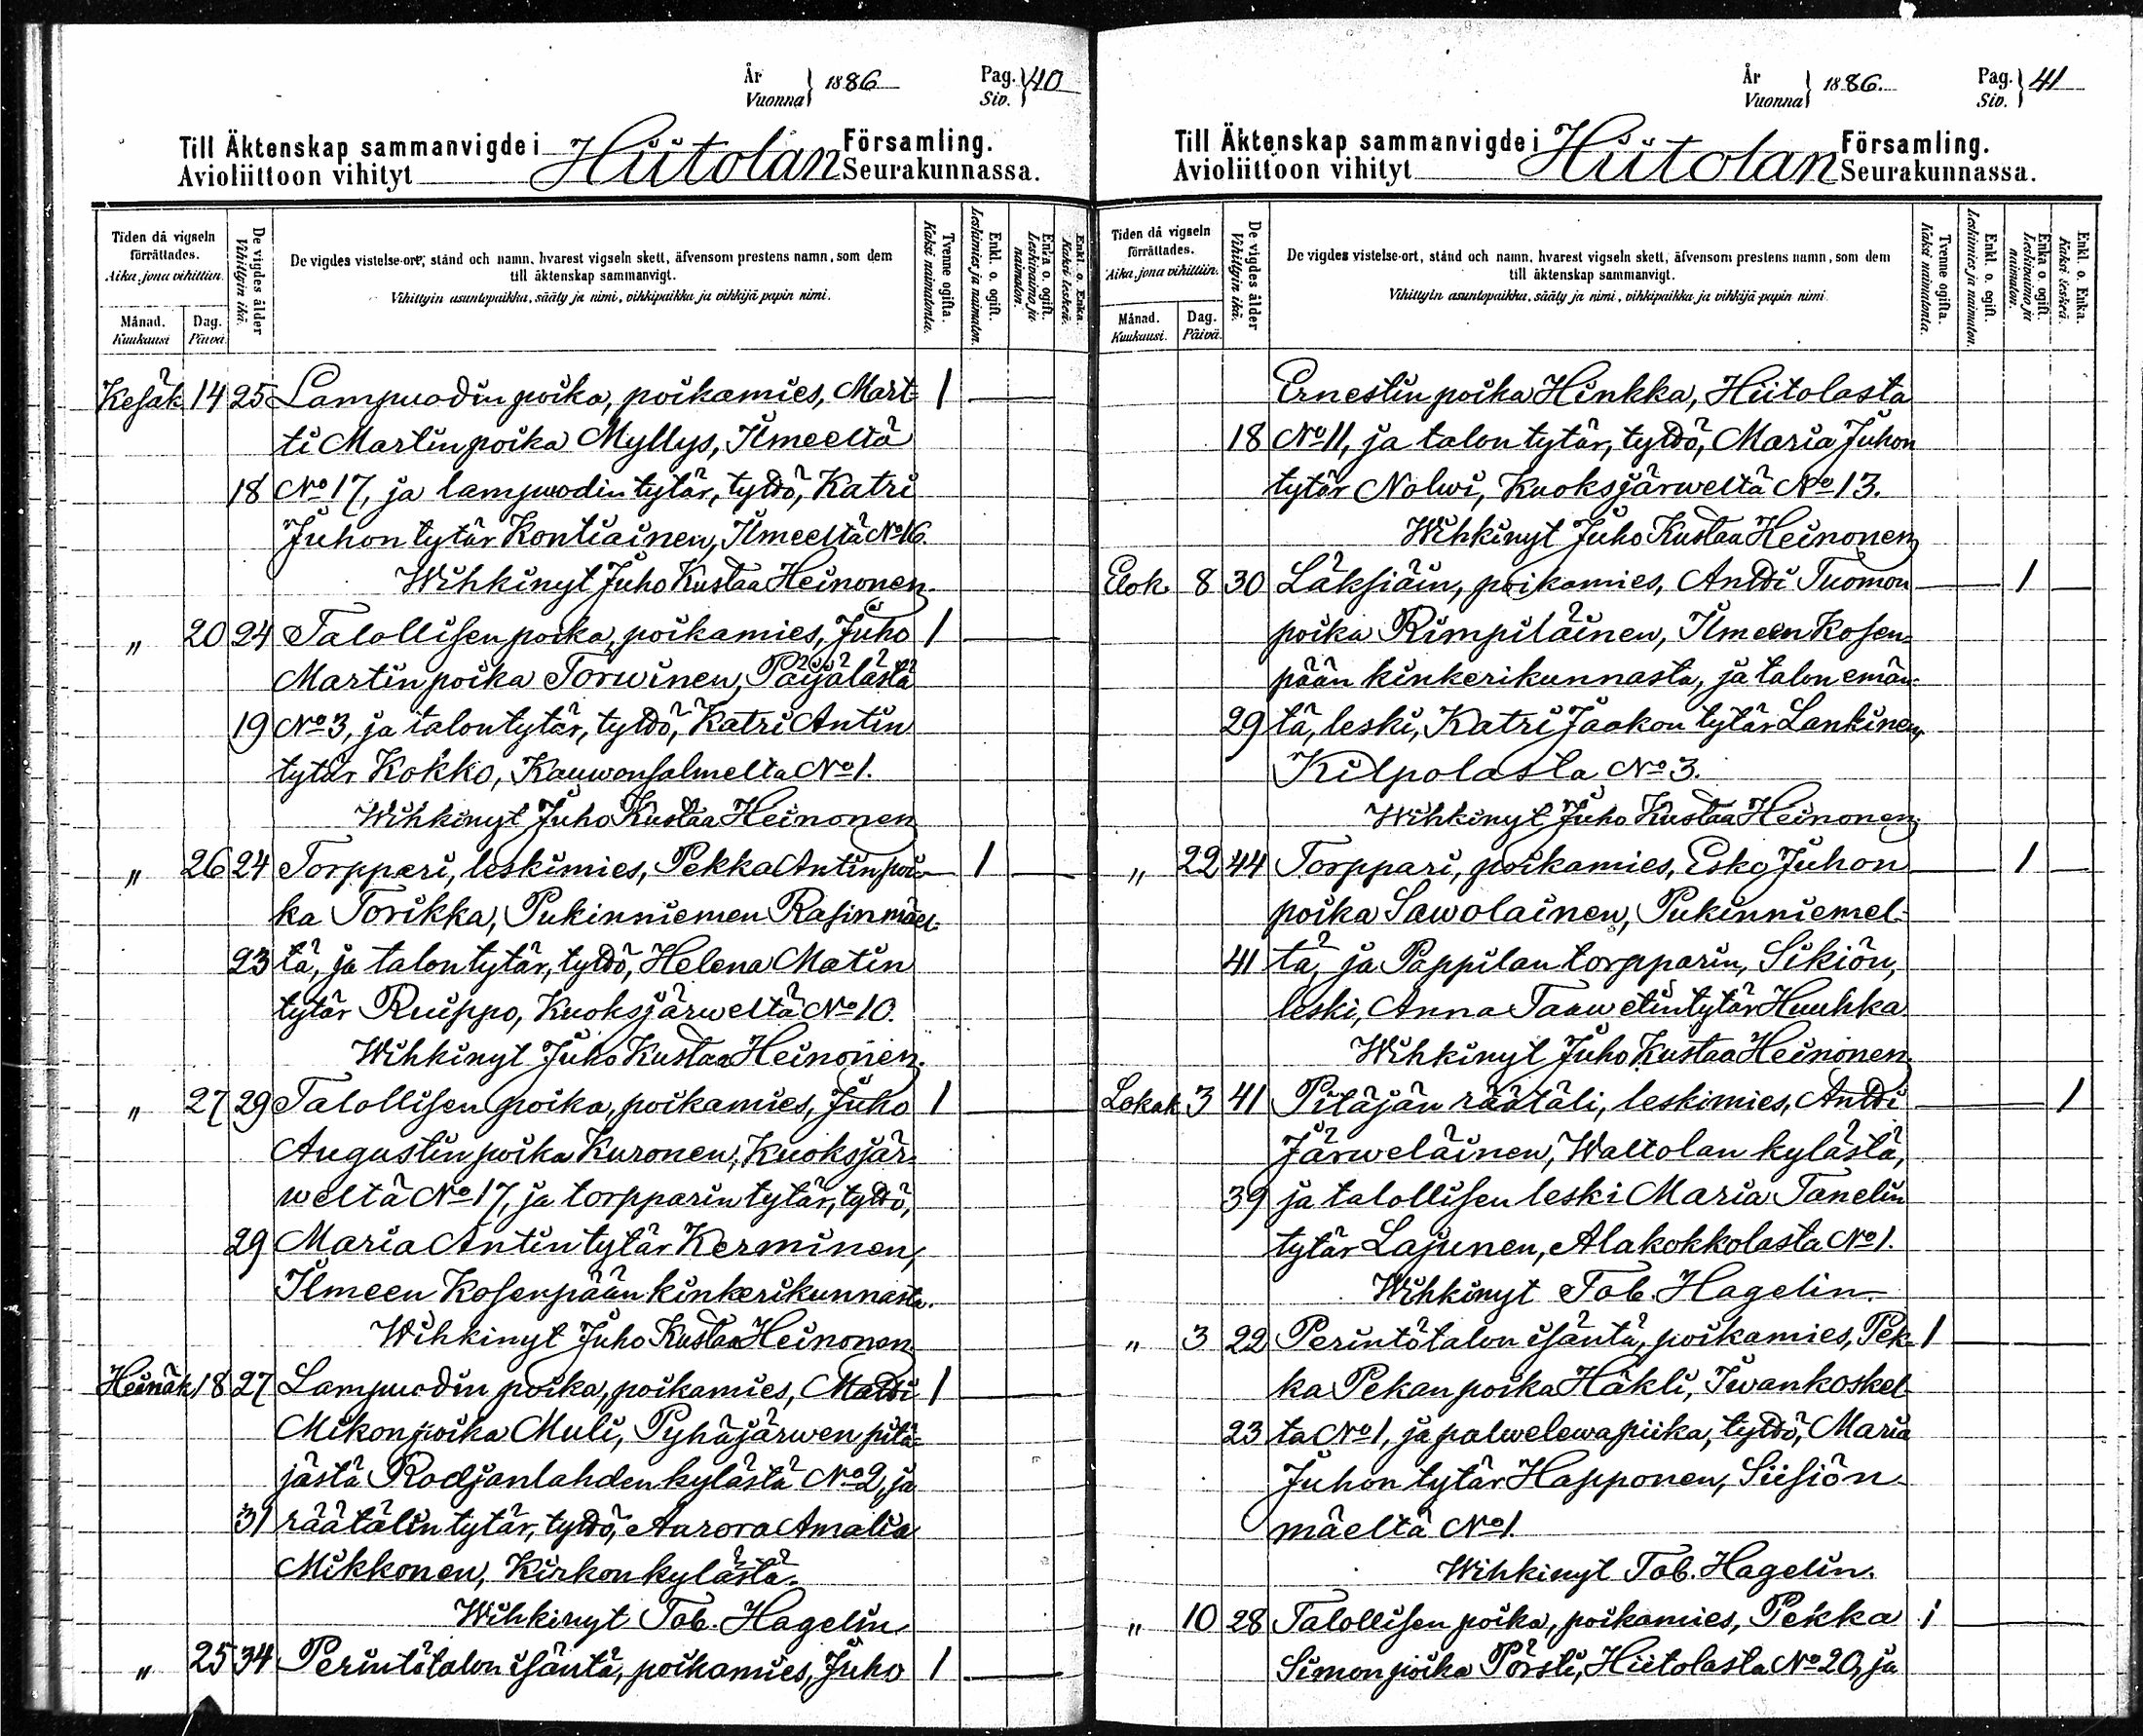 År
Vuonna } 1886 Pag.
Siv. } 40
Till Äktenskap sammanvigde i Hiitolan Församling.
Avioliittoon vihityt Seurakunnassa.
Tiden då vigseln förrättades.
Aika, jona vihittiin.
Månad.
Kuukausi
Dag.
Päivä.
De vigdes ålder
Vihittyin ikä.
De vigdes vistelse-ort, stånd och namn, hvarest vigseln skett, äfvensom prestens namn, som dem
till äktenskap sammanvigt.
Vihittyin asuntopaikka, sääty ja nimi, vihkipaikka ja vihkijä papin nimi.
Tvenne ogifta.
Kaksi naimatonta.
Enkl. o. ogift.
Leskimies ja naimaton.
Enka o. ogift.
Leskivaimo ja naimaton.
Enkl. o. Enka.
Kaksi leskeä.
Kesäk 14 25 Lampuodin poika, poikamies, Mart= 1
ti Martin poika Myllys, Ilmeeltä
18 No 17, ja lampuodin tytär, tyttö, Katri
Juhon tytär Kontiainen, Ilmeeltä No 16.
Wihkinyt Juho Kustaa Heinonen.
" 20 24 Talollisen poika, poikamies, Juho 1
Martin poika Torwinen, Päijälästä
19 No 3, ja talon tytär, tyttö, Katri Antin
tytär Kokko, Kauwonsalmelta No 1.
Wihkinyt Juho Kustaa Heinonen
" 26 24 Torppari, leskimies, Pekka Antin poi= 1
ka Torikka, Pukinniemen Rasinmäel=
23 tä, ja talon tytär, tyttö, Helena Matin
tytär Ruippo, Kuoksjärweltä No 10.
Wihkinyt Juho Kustaa Heinonen.
" 27 29 Talollisen poika, poikamies, Juho 1
Augustin poika Kuronen, Kuoksjär=
weltä No 17, ja torpparin tytär, tyttö,
29 Maria Antin tytär Kerminen,
Ilmeen Kosenpään kinkerikunnasta.
Wihkinyt Juho Kustaa Heinonen.
Heinäk 18 27 Lampuodin poika, poikamies, Matti 1
Mikon poika Muli, Pyhäjärwen pitä=
jästä Rodjanlahden kylästä No 2, ja
31 räätälin tytär, tyttö, Aurora Amalia
Mikkonen, Kirkon kylästä.
Wihkinyt Tob. Hagelin
" 25 34 Perintötalon isäntä, poikamies, Juho 1
År
Vuonna } 1886. Pag.
Siv. } 41
Till Äktenskap sammanvigde i Hiitolan Församling.
Avioliittoon vihityt Seurakunnassa.
Tiden då vigseln förrättades.
Aika, jona vihittiin.
Månad.
Kuukausi.
Dag.
Päivä.
De vigdes ålder
Vihittyin ikä.
De vigdes vistelse-ort, stånd och namn, hvarest vigseln skett, äfvensom prestens namn, som dem
till äktenskap sammanvigt.
Vihittyin asuntopaikka, sääty ja nimi, vihkipaikka ja vihkijä papin nimi
Tvenne ogifta.
Kaksi naimatonta.
Enkl. o. ogift.
Leskimies ja naimaton.
Enka o. ogift.
Leskivaimo ja naimaton.
Enkl. o. Enka.
Kaksi leskeä.
Ernestin poika Hinkka, Hiitolasta
18 No 11, ja talon tytär, tyttö, Maria Juhon
tytär Nolwi, Kuoksjärweltä No 13.
Wihkinyt Juho Kustaa Heinonen
Elok 8 30 Läksiäin, poikamies, Antti Tuomon 1
poika Rimpiläinen, Ilmeen Kosen=
pään kinkerikunnasta, ja talon emän=
29 tä, leski, Katri Jaakon tytär Lankinen,
Kilpolasta No 3.
Wihkinyt Juho Kustaa Heinonen.
" 22 44 Torppari, poikamies, Esko Juhon 1
poika Sawolainen, Pukinniemel=
41 tä, ja Pappilan torpparin, Sikiön,
leski, Anna Taawetin tytär Huuhka
Wihkinyt Juho Kustaa Heinonen.
Lokak 3 41 Pitäjän räätäli, leskimies, Antti 1
Järweläinen, Waltolan kylästä,
39 ja talollisen leski Maria Tanelin
tytär Lajunen, Alakokkolasta No 1.
Wihkinyt Tob. Hagelin.
" 3 22 Perintötalon isäntä, poikamies, Pek= 1
ka Pekan poika Häkli, Iwankoskel=
23 ta No 1, ja palwelewa piika, tyttö, Maria
Juhon tytär Happonen, Siisiön
mäeltä No 1.
Wihkinyt Tob. Hagelin.
" 10 28 Talollisen poika, poikamies, Pekka 1
Simon poika Pörsti, Hiitolasta No 20, ja